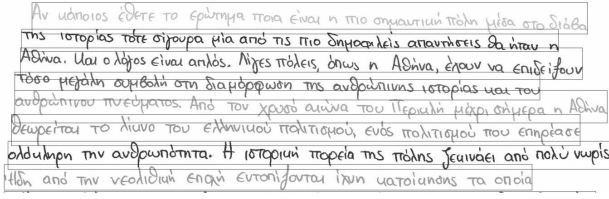 Αν κάποιος έθετε το ερώτημα ποια είναι η πιο σημαντική πόλη μέσα στο διάβα
της ιστορίας τότε σίγουρα μία από τις πιο δημοφιλείς απαντήσεις θα ήταν η
Αθήνα. Και ο λόγος είναι απλός. Λίγες πόλεις, όπως η Αθήνα, έχουν να επιδείξουν
τόσο μεγάλη συμβολή στη διαμόρφωση της ανθρώπινης ιστορίας και του
ανθρώπινου πνεύματος. Από τον χρυσό αιώνα του Περικλή μέχρι σήμερα η Αθήνα
θεωρείται το λίκνο του ελληνικού πολιτισμού, ενός πολιτισμού που επηρέασε
ολόκληρη την ανθρωπότητα. Η ιστορική πορεία της πόλης ξεκινάει από πολύ νωρίς
Ήδη από την νεολιθική εποχή εντοπίζονται ίχνη κατοίκησης τα οποία